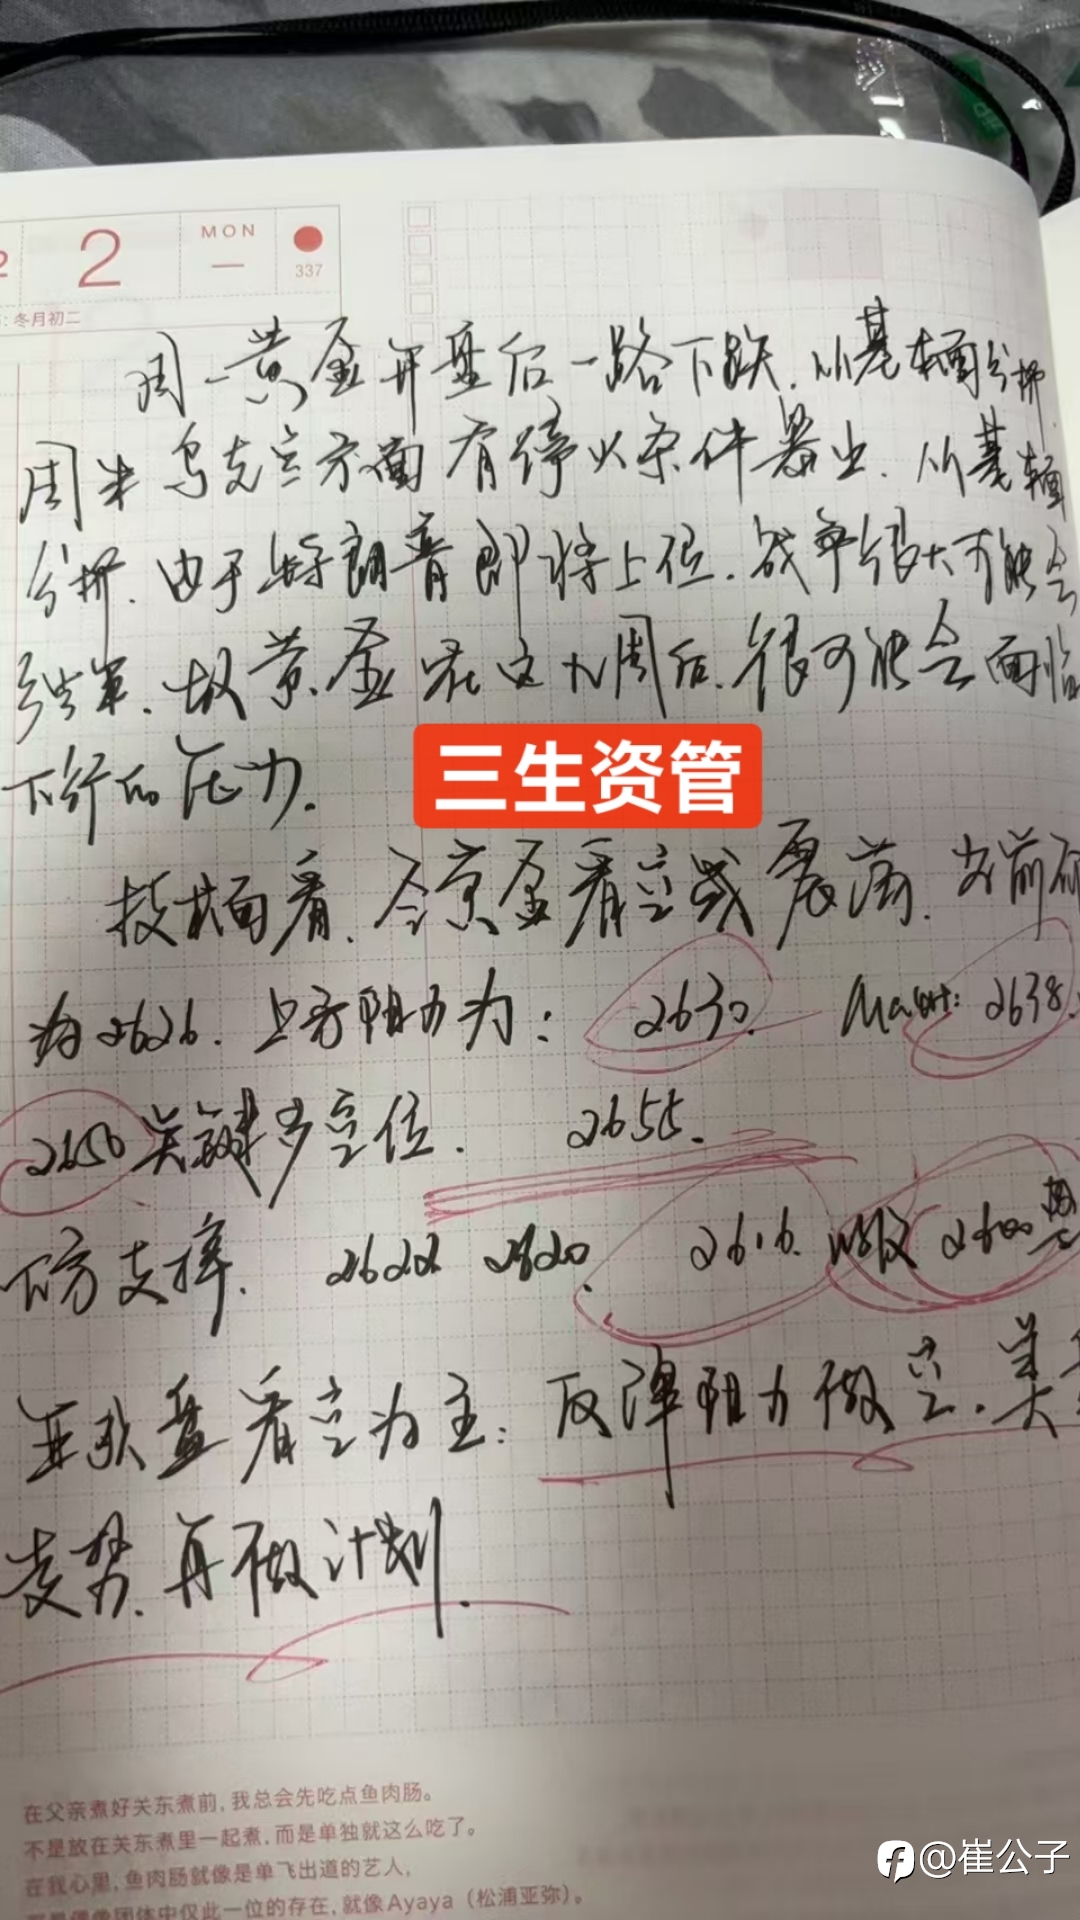 2
2
MON
一
337
冬月初二
周一黄金开盘后一路下跌.从基本面分析
周末乌克兰方面有停火条件暴出.从基本面
分析.由于特朗普即将上位.战争很大可能会
结束.故黄金在这九周后.很可能会面临
下行的压力.
三生资管
技术面看.今黄金看空或震荡.当前
为2626.上方阻力为: 2630. 2638.
2650关键多空位. 2655.
下方支撑. 2622 2620. 2616. 2600
亚欧盘看空为主:反弹阻力做空.美
走势.再做计划.
在父亲煮好关东煮前,我总会先吃点鱼肉肠。
不是放在关东煮里一起煮,而是单独就这么吃了。
在我心里,鱼肉肠就像是单飞出道的艺人,
偶像团体中仅此一位的存在,就像Ayaya(松浦亚弥)。
@崔公子